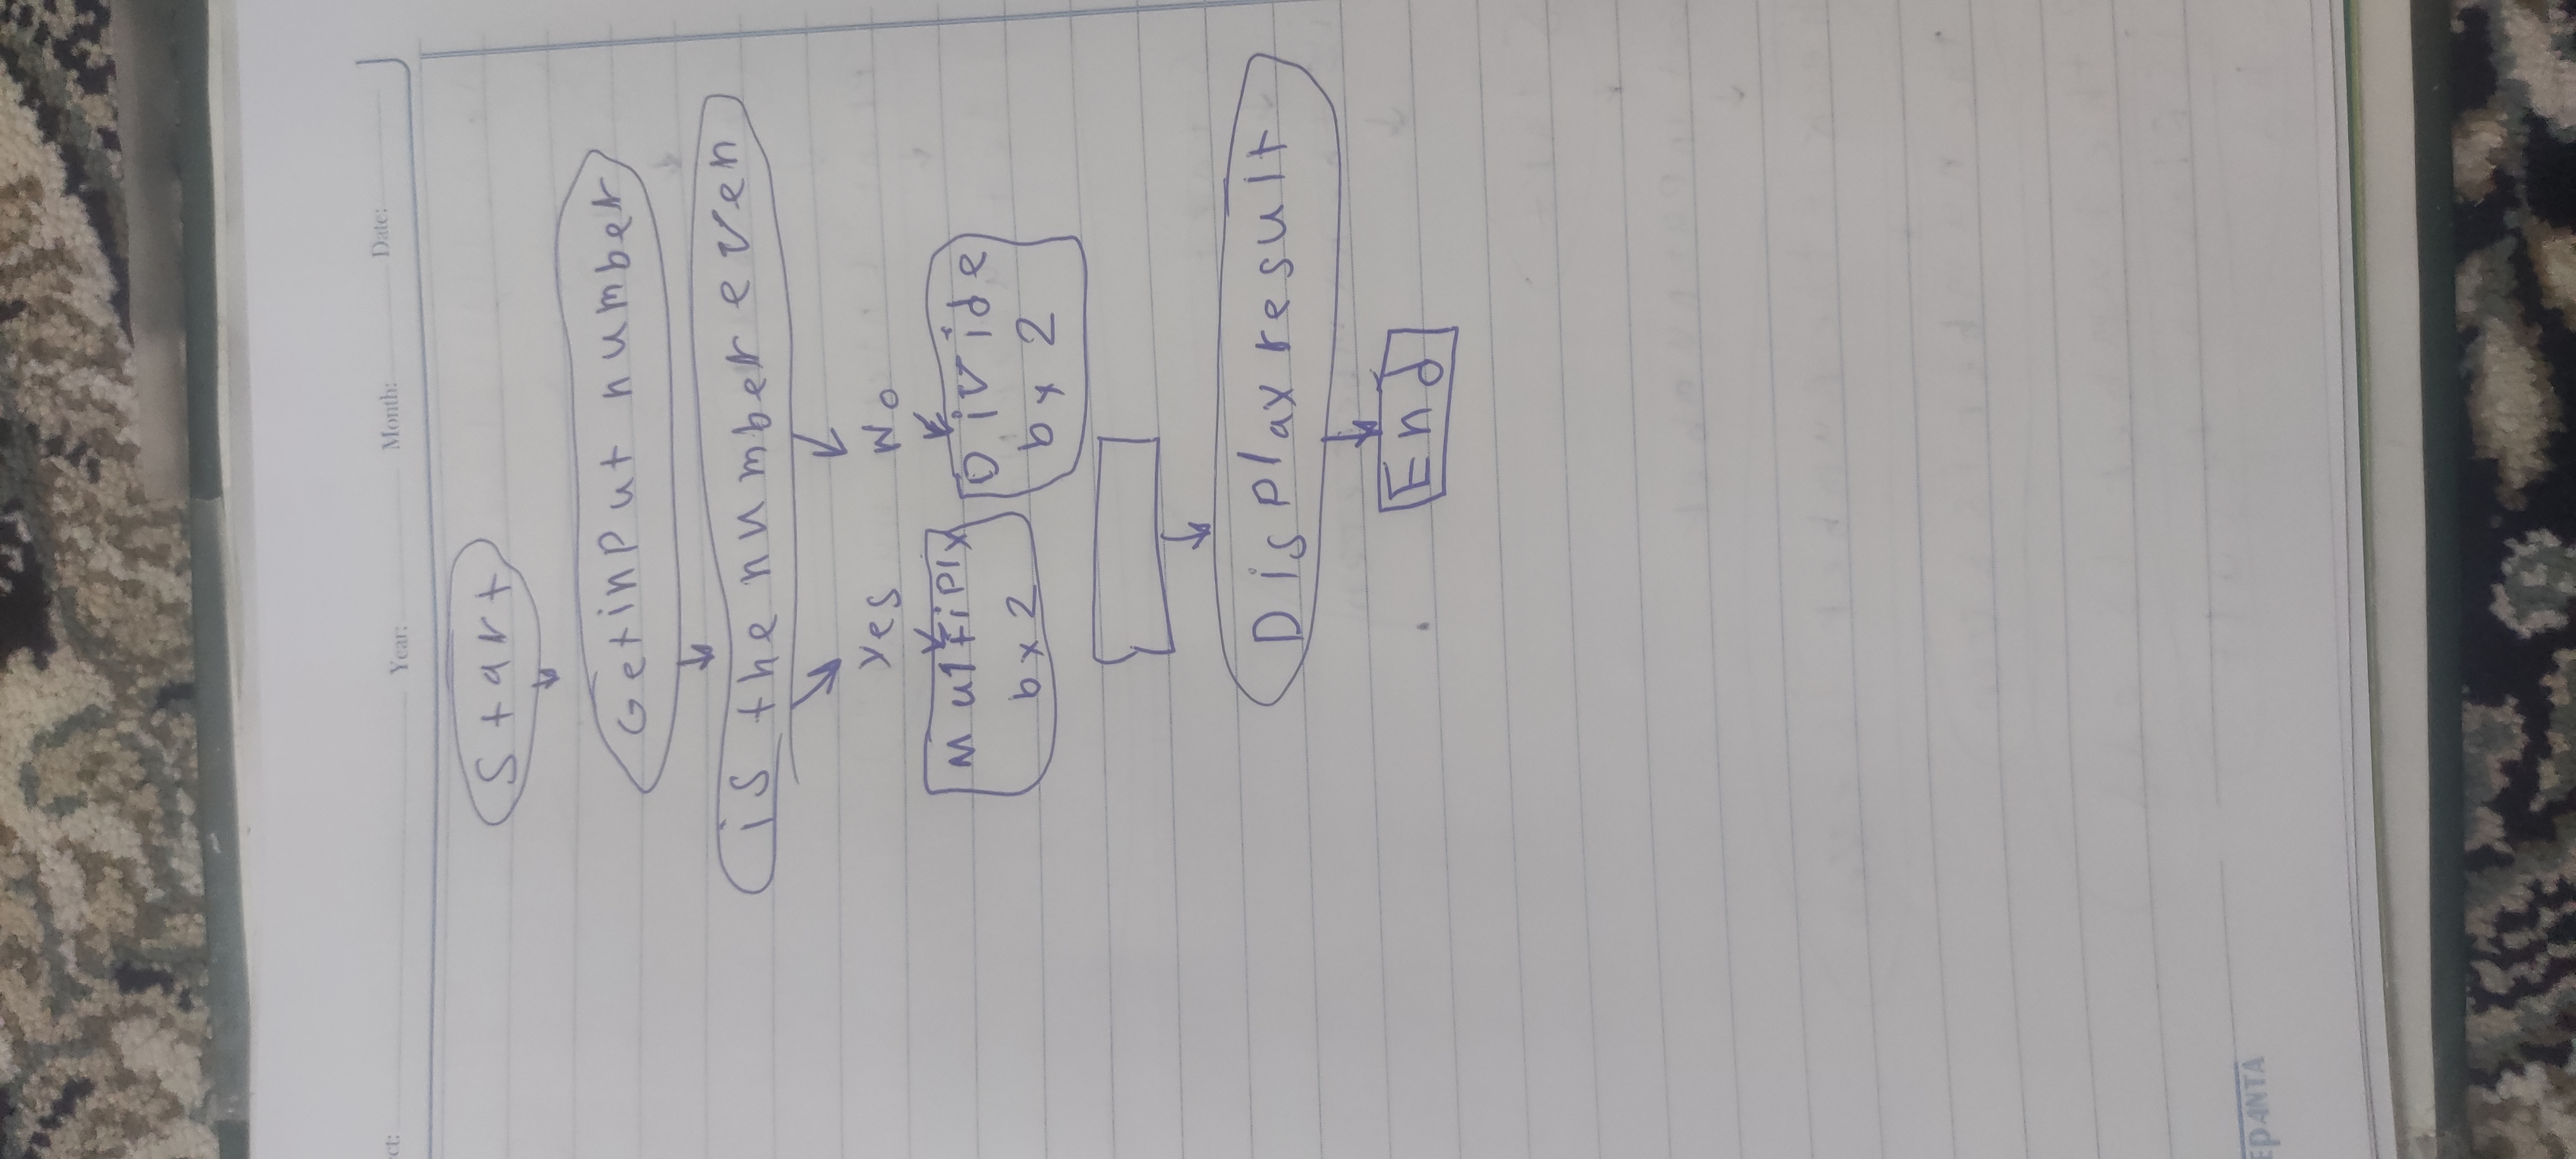 ct: Year: Month: Date:
Start
Get input number
is the number even
Yes No
Multiply Divide
by 2 by 2
Display result
End
EPANTA